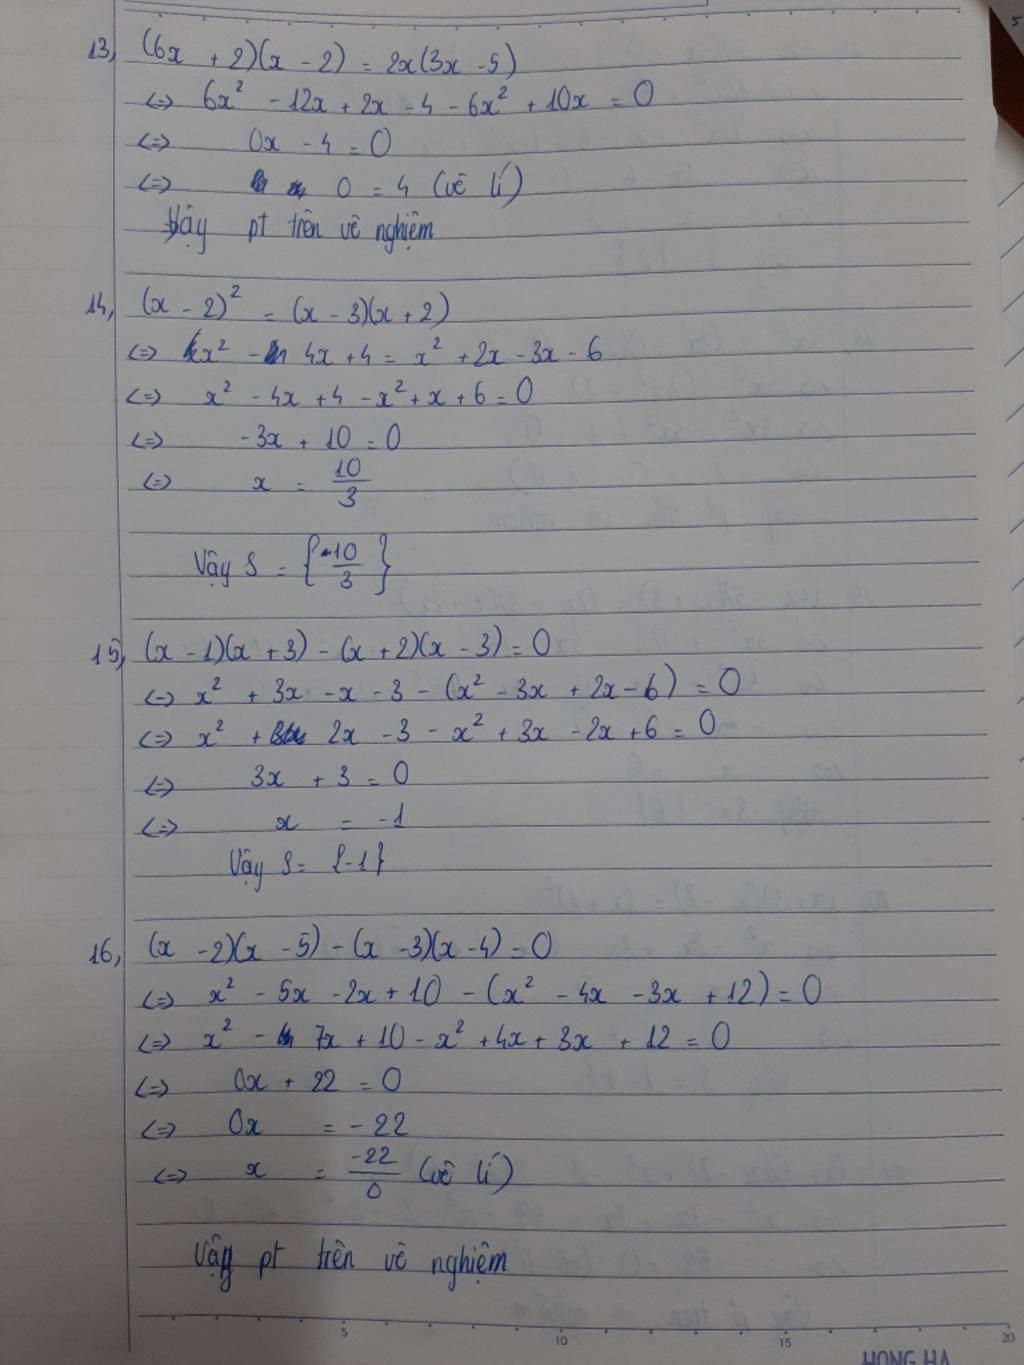 13, (6x + 2)(x - 2) = 2x(3x - 5)
<=> 6x² - 12x + 2x - 4 - 6x² + 10x = 0
<=> 0x - 4 = 0
<=> 0 = 4 (vô lí)
Vậy pt trên vô nghiệm
14, (x - 2)² = (x - 3)(x + 2)
<=> x² - 4x + 4 = x² + 2x - 3x - 6
<=> x² - 4x + 4 - x² + x + 6 = 0
<=> -3x + 10 = 0
<=> x = 10/3
Vậy S = {10/3}
15, (x - 1)(x + 3) - (x + 2)(x - 3) = 0
<=> x² + 3x - x - 3 - (x² - 3x + 2x - 6) = 0
<=> x² + 2x - 3 - x² + 3x - 2x + 6 = 0
<=> 3x + 3 = 0
<=> x = -1
Vậy S = {-1}
16, (x - 2)(x - 5) - (x - 3)(x - 4) = 0
<=> x² - 5x - 2x + 10 - (x² - 4x - 3x + 12) = 0
<=> x² - 7x + 10 - x² + 4x + 3x + 12 = 0
<=> 0x + 22 = 0
<=> 0x = -22
<=> x = -22/0 (vô lí)
Vậy pt trên vô nghiệm
5 10 15 20
HONG HA